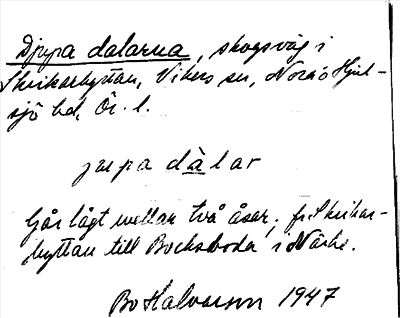 Djupa dalarna, skogsväg i
Skrikarhyttan, Vikers sn, Nora o Hjul-
sjö bd, Ör. l.
jupa dàlar
Går lågt mellan två åsar, fr. Skrikar-
hyttan till Bocksboda, i Närke.
Bo Halvarson 1947